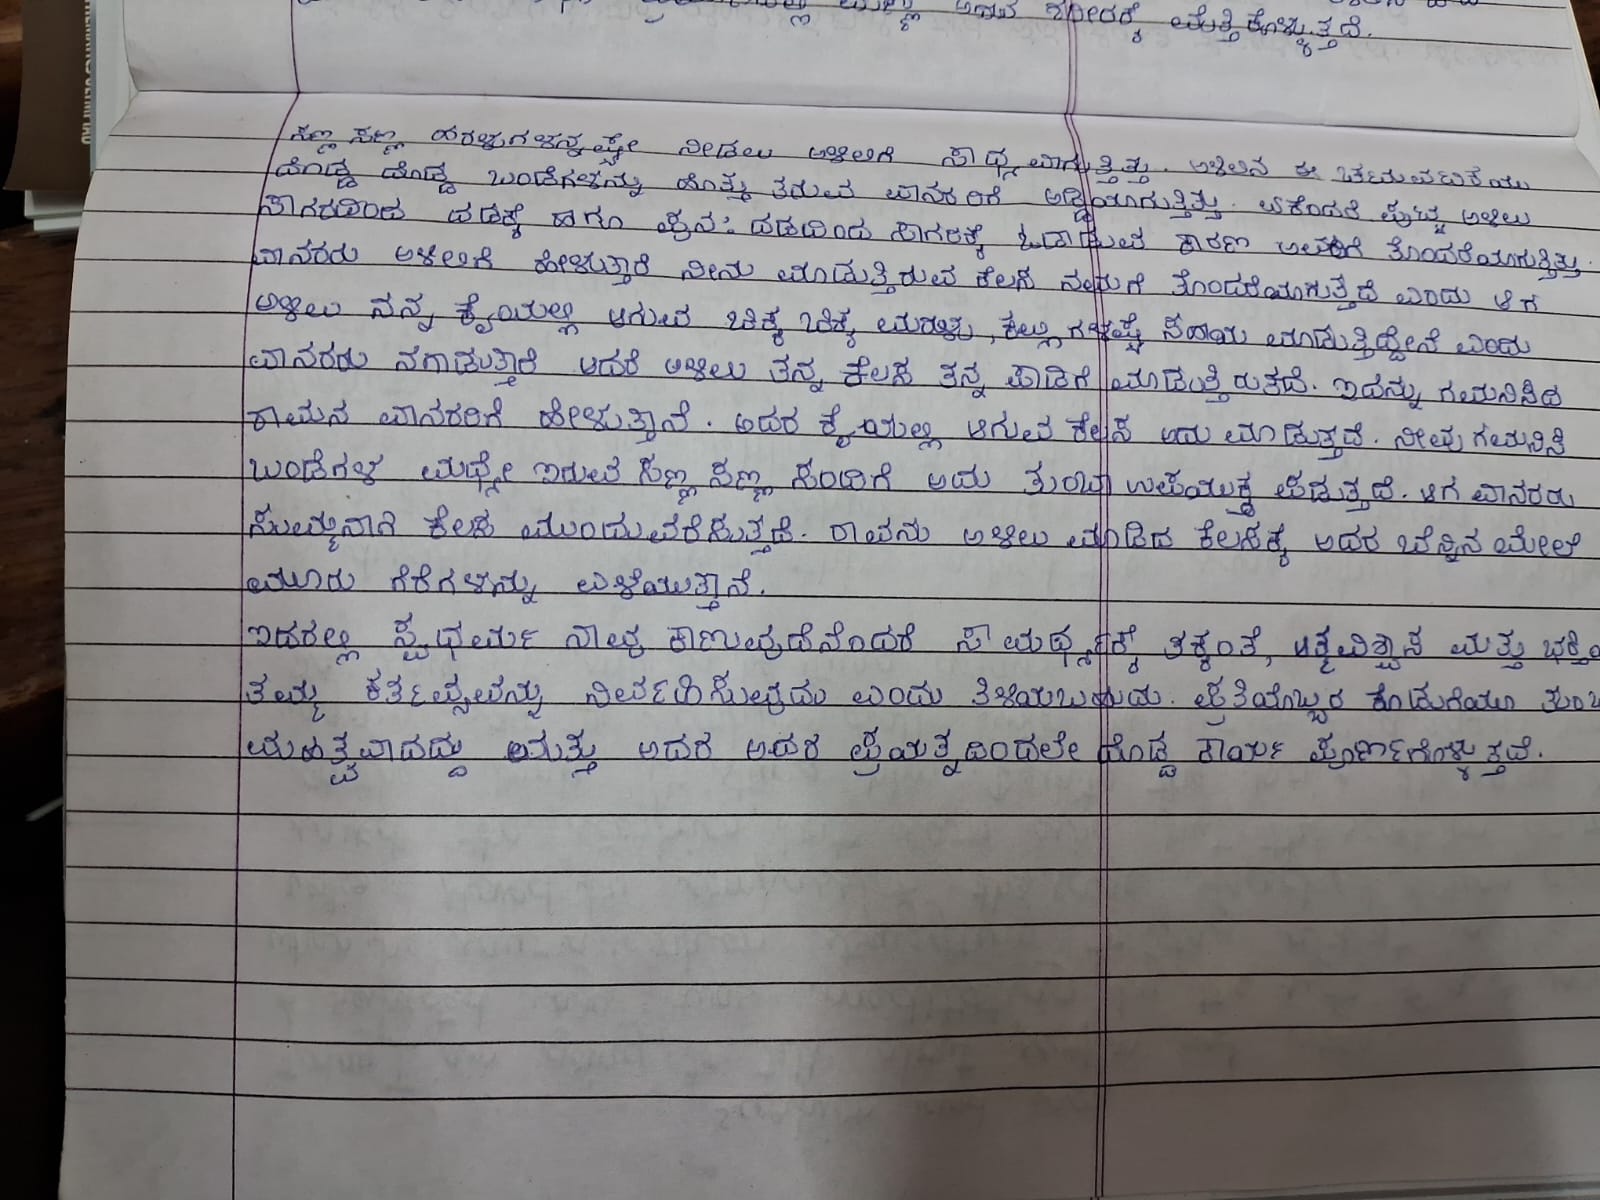 ಮಣ್ಣು ಅದರ ಶರೀರಕ್ಕೆ ಮೆತ್ತಿಕೊಳ್ಳುತ್ತದೆ.
ಸಣ್ಣ ಸಣ್ಣ ಹರಳುಗಳನ್ನಷ್ಟೇ ನೀಡಲು ಅಳಿಲಿಗೆ ಸಾಧ್ಯವಾಗುತ್ತಿತ್ತು. ಅಳಿಲಿನ ಈ ಚಟುವಟಿಕೆಯು
ದೊಡ್ಡ ದೊಡ್ಡ ಬಂಡೆಗಳನ್ನು ಹೊತ್ತು ತರುವ ವಾನರರಿಗೆ ಅಡ್ಡಿಯಾಗುತ್ತಿತ್ತು. ಏಕೆಂದರೆ ಪುಟ್ಟ ಅಳಿಲು
ಸಾಗರದಿಂದ ದಡಕ್ಕೆ ಹಾಗೂ ಪುನಃ ದಡದಿಂದ ಸಾಗರಕ್ಕೆ ಓಡಾಡುವ ಕಾರಣ ಅವರಿಗೆ ತೊಂದರೆಯಾಗುತ್ತಿತ್ತು.
ವಾನರರು ಅಳಿಲಿಗೆ ಹೇಳುತ್ತಾರೆ ನೀನು ಮಾಡುತ್ತಿರುವ ಕೆಲಸ ನಮಗೆ ತೊಂದರೆಯಾಗುತ್ತದೆ ಎಂದು ಆಗ
ಅಳಿಲು ನನ್ನ ಕೈಯಲ್ಲಿ ಆಗುವ ಚಿಕ್ಕ ಚಿಕ್ಕ ಮರಳು, ಕಲ್ಲುಗಳಷ್ಟೆ ಸಹಾಯ ಮಾಡುತ್ತಿದ್ದೇನೆ ಎಂದು
ವಾನರರು ನಗಾಡುತ್ತಾರೆ ಆದರೆ ಅಳಿಲು ತನ್ನ ಕೆಲಸ ತನ್ನ ಪಾಡಿಗೆ ಮಾಡುತ್ತಿರುತ್ತದೆ. ಇದನ್ನು ಗಮನಿಸಿದ
ರಾಮನ ವಾನರರಿಗೆ ಹೇಳುತ್ತಾನೆ. ಅದರ ಕೈಯಲ್ಲಿ ಆಗುವ ಕೆಲಸ ಅದು ಮಾಡುತ್ತದೆ. ನೀವು ಗಮನಿಸಿ
ಬಂಡೆಗಳ ಮಧ್ಯೇ ಇರುವ ಸಣ್ಣ ಸಣ್ಣ ಸಂದಿಗೆ ಅದು ತುಂಬಾ ಉಪಯುಕ್ತ ಪಡುತ್ತದೆ. ಆಗ ವಾನರರು
ಸುಮ್ಮನಾಗಿ ಕೆಲಸ ಮುಂದುವರೆಸುತ್ತದೆ. ರಾಮನು ಅಳಿಲು ಮಾಡಿದ ಕೆಲಸಕ್ಕೆ ಅದರ ಬೆನ್ನಿನ ಮೇಲೆ
ಮೂರು ಗೆರೆಗಳನ್ನು ಎಳೆಯುತ್ತಾನೆ.
ಇದರಲ್ಲಿ ಸ್ವಧರ್ಮ ನಾವು ಕಾಣುವುದೆನೆಂದರೆ ಸಾಮರ್ಥ್ಯಕ್ಕೆ ತಕ್ಕಂತೆ, ಆತ್ಮವಿಶ್ವಾಸ ಮತ್ತು
ತಮ್ಮ ಕರ್ತವ್ಯವನ್ನು ನಿರ್ವಹಿಸುವುದು ಎಂದು ತಿಳಿಯಬಹುದು. ಪ್ರತಿಯೊಬ್ಬರ ಕೊಡುಗೆಯೂ
ಮಹತ್ವವಾದದ್ದು ಮತ್ತು ಅದರ ಅದರ ಪ್ರಯತ್ನದಿಂದಲೇ ದೊಡ್ಡ ಕಾರ್ಯ ಪೂರ್ಣಗೊಳ್ಳುತ್ತದೆ.